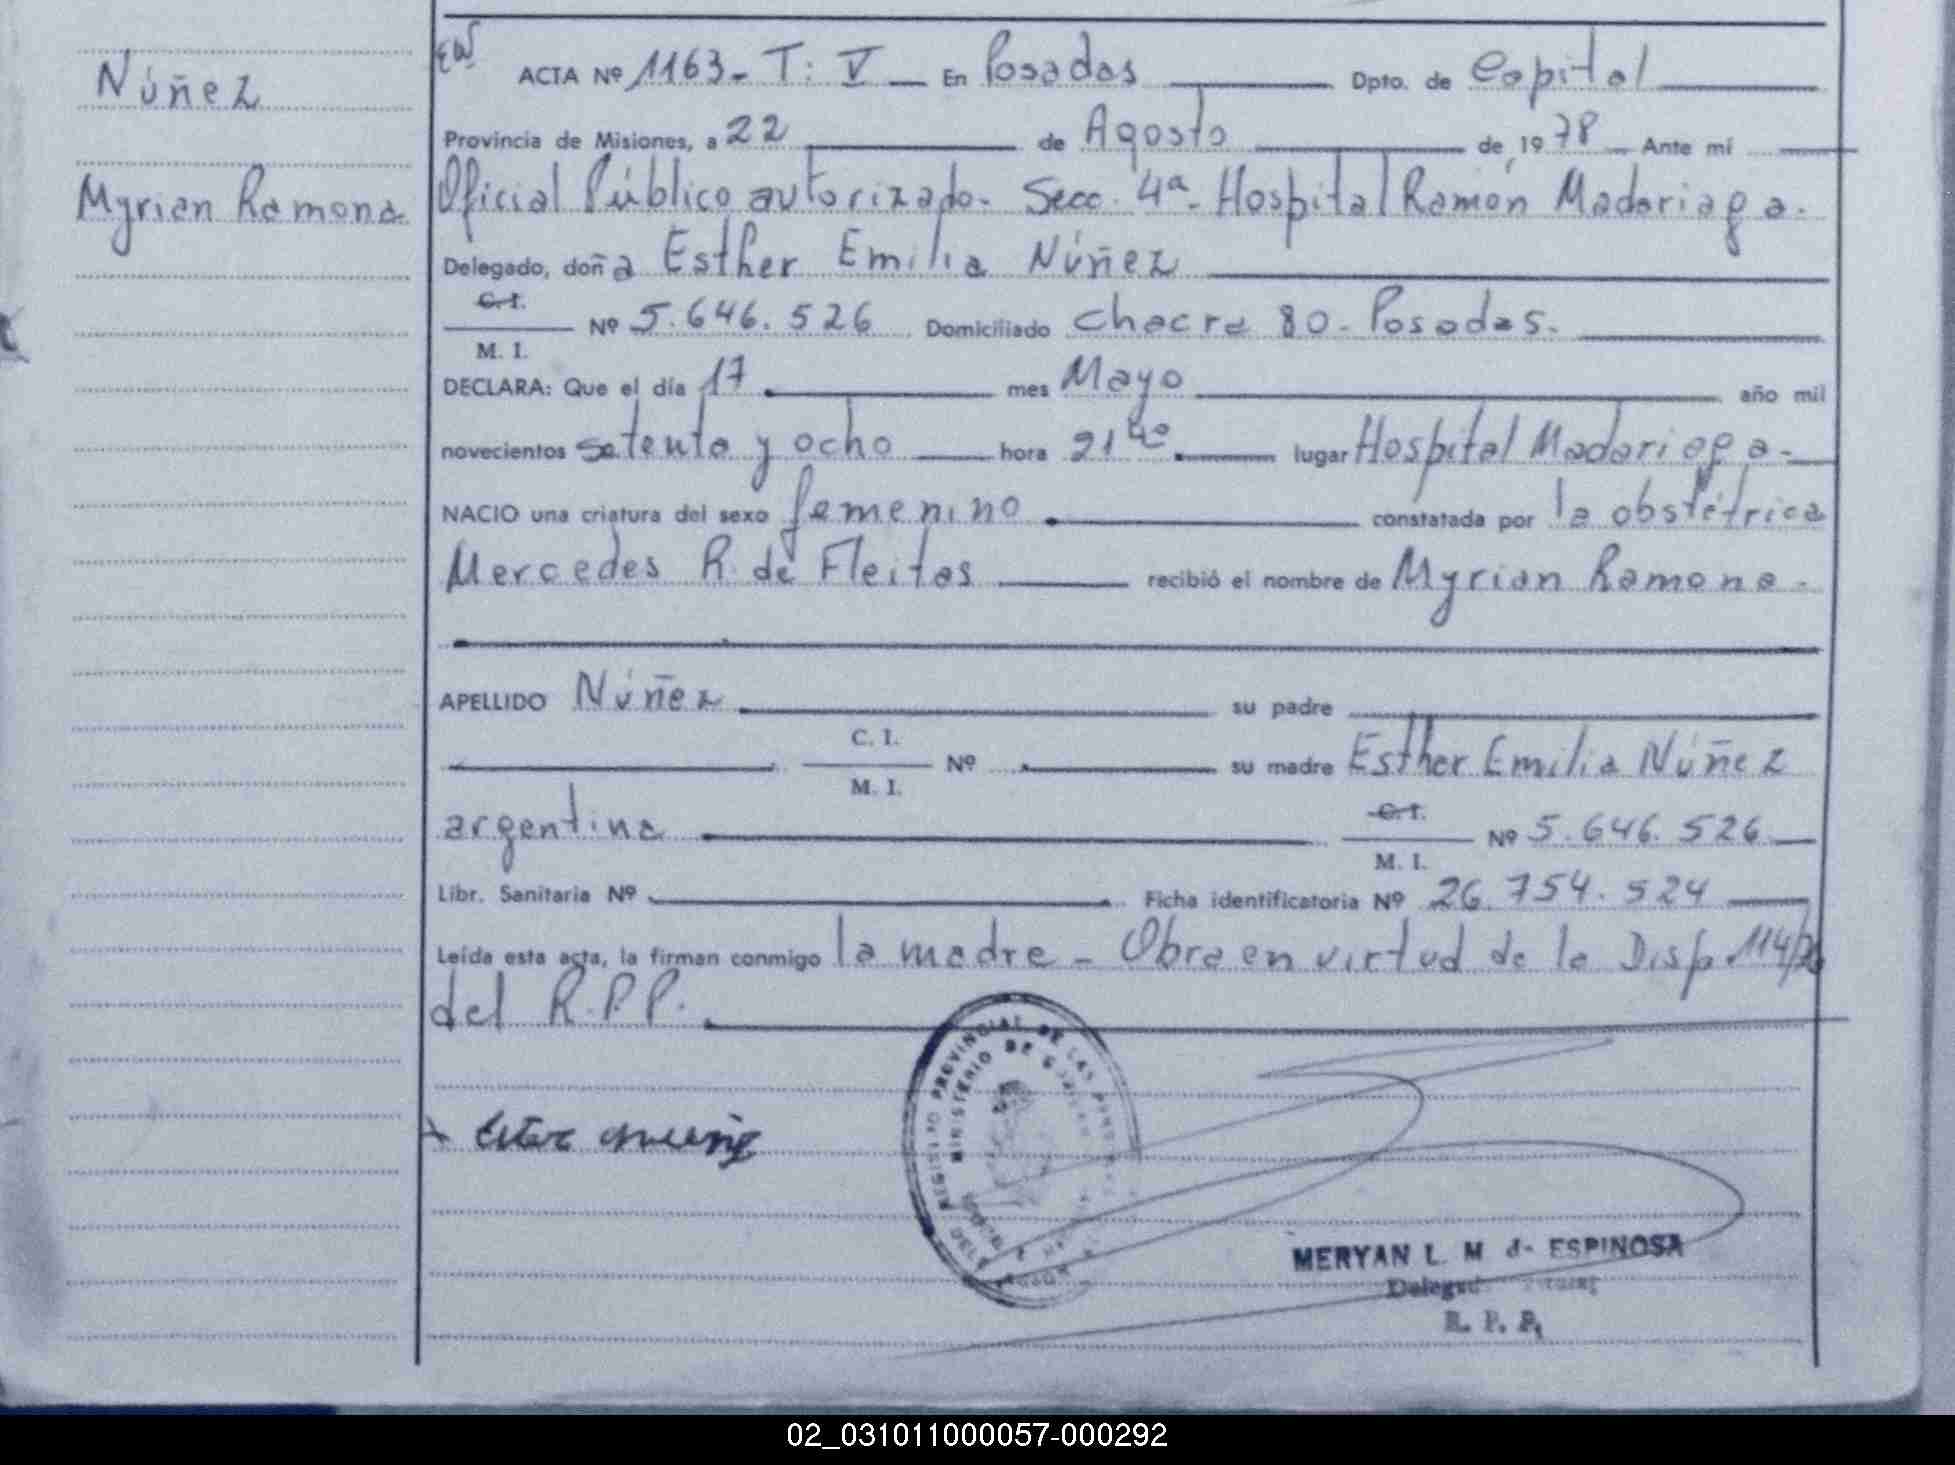 Núñez
Myrian Ramona
ACTA Nº 1163- T: V En Posadas Dpto. de Capital
Provincia de Misiones, a 22 de Agosto de 1978 Ante mí
Oficial Público autorizado. Secc. 4ª. Hospital Ramón Madariaga.
Delegado, doña Esther Emilia Núñez
C. I.
M. I. Nº 5.646.526 Domiciliado Chacra 80- Posadas.
DECLARA: Que el día 17 mes Mayo año mil
novecientos setenta y ocho hora 21 40 lugar Hospital Madariaga-
NACIO una criatura del sexo femenino constatada por la obstétrica
Mercedes R. de Fleitas recibió el nombre de Myrian Ramona-
APELLIDO Núñez su padre
C. I.
M. I. Nº su madre Esther Emilia Núñez
argentina C. I.
M. I. Nº 5.646.526
Libr. Sanitaria Nº Ficha identificatoria Nº 26.754.524
Leída esta acta, la firman conmigo la madre - Obra en virtud de la Disp. 114/
del R.P.P.
REGISTRO PROVINCIAL DE LAS
MINISTERIO DE
MERYAN L. M de ESPINOSA
R. P. P.
02_031011000057-000292